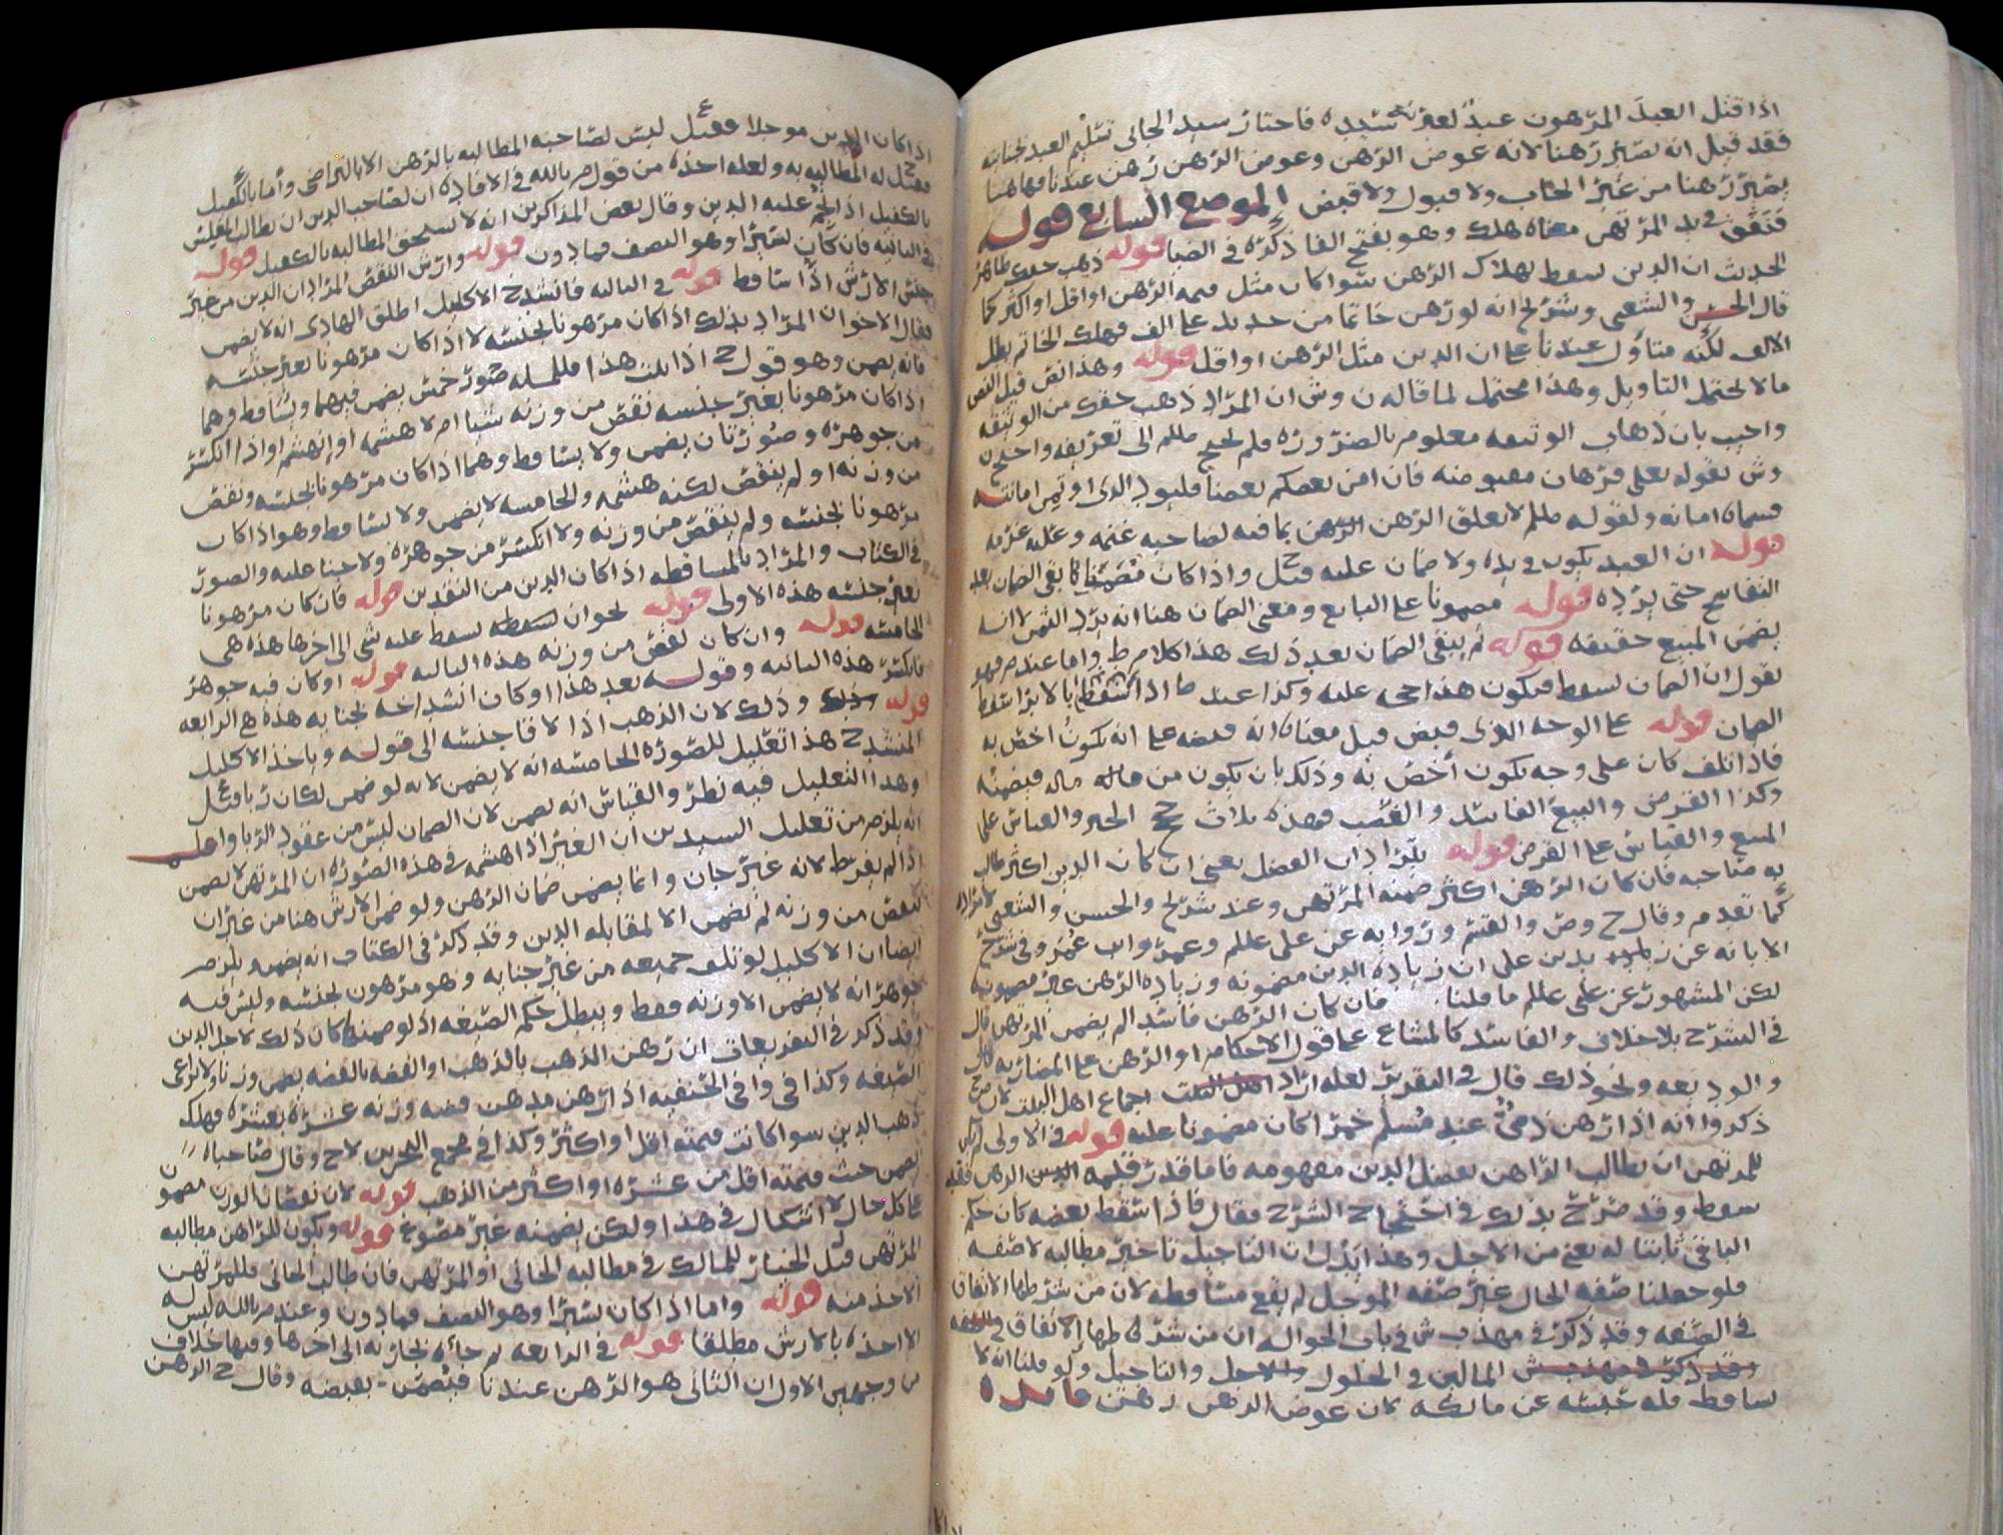 اذا قتل العبد المرهون عبدا لغير سيده فاختار سيد الجاني تسليم العبد لجنايته
فقد قيل انه يصير رهنا لانه عوض الرهن وعوض الرهن رهن عندنا فهاهنا
يصير رهنا من غير ايجاب ولا قبول ولا قبض الموضع السابع قوله
فنفق في يد المرتهن معناه هلك وهو بفتح الفا ذكره في الضيا قوله ذهب حقك ظاهر
الحديث ان الدين يسقط بهلاك الرهن سوا كان مثل قيمه الرهن او اقل او اكثر كما
قال الحسن والشعبي وشريح انه لو رهن خاتما من حديد على الف فهلك الخاتم بطل
الالف لكنه متأول عندنا على ان الدين مثل الرهن او اقل قوله وهذا نص قيل النص
ما لا يحتمل التاويل وهذا محتمل لما قاله ن وش ان المراد ذهب حقك من الوثيقه
واجيب بان ذهاب الوثيقه معلوم بالضروره فلم يحتج صللم الى تعريفه واحتج ن
وش بقوله تعلى فرهان مقبوضه فان امن بعضكم بعضا فليود الذي اوتمن امانته
فسماه امانه ولقوله صللم لا يغلق الرهن الرهن بما فيه لصاحبه غنمه وعليه غرمه
قوله ان العبد يكون في يده ولا ضمان عليه قيل ح واذا كان مضمنا بقي الضمان بعد
التفاسخ حتى يرده قوله مضمونا على البايع ومعنى الضمان هنا انه يرد الثمن لا انه
يضمن المبيع حقيقه قوله لم يبقى الضمان بعد ذلك هذا كلام ط واما عند م فهو
يقول ان الضمان يسقط فيكون هذا حجه عليه وكذا عند ط اذا سقط بالابرا سقط
الضمان قوله على الوجه الذي قبض قيل معناه انه قبضه على انه يكون اخص به
فاذا تلف كان على وجه يكون أخص به وذلك بان يكون من ماله فيضمنه
وكذا القرض والبيع الفاسد والغصب فهذه ثلاث حج الخبر والقياس على
المبيع والقياس على القرض قوله يترادان الفضل يعني ان كان الدين اكثر طالب
به صاحبه فان كان الرهن اكثر ضمنه المرتهن وعند شريح والحسن والشعبي لا تراد
كما تقدم وقال ح وص والقسم وروايه عن علي عللم وعمر وابن عمر وفي شرح
الابانه عن زيد بن علي ان زياده الدين مضمونه وزياده الرهن غير مضمونه
لكن المشهور عن علي عللم ما قلنا فان كان الرهن فاسدا لم يضمن المرتهن قال
في الشرح بلا خلاف والفاسد كالمشاع على قول الاحكام او الرهن على المضاربه
والوديعه ونحو ذلك قال في التقرير لعله اراد اجماع اهل البيت لان ص ح
ذكروا انه اذا رهن ذمي عند مسلم خمرا كان مضمونا عليه قوله في الاولى لم يكن
للمرتهن ان يطالب الراهن بفضل الدين مفهومه فاما قدر قيمه الرهن فقد
سقط وقد صرح بذلك في احتجاج الشرح فقال فاذا سقط بعضه كان حكم
الباقي ثابتا له يعني من الاجل وهذا يدل ان التاجيل تاخير مطالبه لا صفه
فلو جعلنا صفه الحال غير صفه الموجل لم يقع مساقطه لان من شرطها الاتفاق
في الصفه وقد ذكر في مهذب ش في باب الحواله ان من شرطها الاتفاق في الصفه
المالين في الحلول والتاجيل ولو قلنا انه لا
يساقط فله حبسه عن مالكه لان عوض الرهن رهن فائده
اذا كان الدين موجلا فقيل ع ليس لصاحبه المطالبه بالرهن الا بالتراضي وأما بالكفيل
فقيل ح له المطالبه به ولعله اخذه من قول م بالله في الافاده ان لصاحب الدين ان يطالب المفلس
بالكفيل اذا حجر عليه الدين وقال بعض المذاكرين انه لا يستحق المطالبه بالكفيل قوله
في الثانيه فان كان يسيرا وهو النصف فما دون قوله وارش النقص المراد ان الدين من غير
جنس الارش اذا تساقط قوله في الثالثه فانشدخ الاكليل اطلق الهادي انه لا يضمن
فقال الاخوان المراد بذلك اذا كان مرهونا بجنسه لا اذا كان مرهونا بغير جنسه
فانه يضمن وهو قول ح اذا ثبت هذا فللمسله صور خمس يضمن فيهما ويتساقط وهما
اذا كان مرهونا بغير جنسه نقص من وزنه شيا ام لا هشمه او انهشم او اذا انكسر
من جوهره وصورتان يضمن ولا يتساقط وهما اذا كان مرهونا بجنسه ونقص
من وزنه او لم ينقص لكنه هشمه والخامسه لا يضمن ولا يتساقط وهو اذا كان
مرهونا بجنسه ولم ينقص من وزنه ولا انكسر من جوهره ولا جنا عليه والصور
في الكتاب والمراد بالمساقطه اذا كان الدين من النقدين قوله فان كان مرهونا
بغير جنسه هذه الاولى قوله نحو ان يسقط عليه شي الى اخرها هذه هي
الخامسه قوله وان كان نقص من وزنه هذه الثالثه قوله او كان فيه جوهر
فانكسر هذه الثانيه وقوله بعد هذا او كان انشداخه بجنايه هذه هي الرابعه
قوله وذلك لان الذهب اذا لاقا جنسه الى قوله وياخذ الاكليل
المنشدخ هذا تعليل للصوره الخامسه انه لا يضمن لانه لو ضمن لكان ربا قيل ع
وهذا التعليل فيه نظر والقياس انه يضمن لان الضمان ليس من عقود الربا واصله
انه يلزم من تعليل السيدين ان الغير اذا هشمه في هذه الصوره ان المرتهن لا يضمن
اذا لم يفرط لانه غير جان وانما يضمن ضمان الرهن ولو ضمن الارش هنا من غير ان
ينقص من وزنه لم يضمن الا لمقابله الدين وقد ذكر في الكتاب انه يضمن ويلزم
ايضا ان الاكليل لو تلف جميعه من غير جنايه وهو مرهون بجنسه وليس فيه
جوهر انه لا يضمن الا وزنه فقط ويبطل حكم الصنعه اذ لو ضمنها كان ذلك لاجل الدين
وقد ذكر في التفريعات ان رهن الذهب بالذهب او الفضه بالفضه يضمن وزنا ولا يراعى
الصنعه وكذا في وافي الحنفيه اذا رهن مدهن فضه وزنه عشره بعشره فهلك
ذهب الدين سوا كانت قيمته اقل او اكثر وكذا في مجمع البحرين لاح وقال صاحباه
يضمن حيث قيمته اقل من عشره او اكثر من الذهب قوله لان نقصان الوزن مضمون
على كل حال لا اشكال في هذا ولكن يضمنه غير مصنوع قوله ويكون للراهن مطالبه
المرتهن قيل الخيار للمالك في مطالبه الجاني او المرتهن فان طالب الجاني فللمرتهن
الاخذ منه قوله واما اذا كان يسيرا وهو النصف فما دون وعند م بالله ليس له
الا اخذه بالارش مطلقا قوله في الرابعه ثم جاه بجاريه الى اخرها وفيها خلاف
من وجهين الاول ان الثاني هو الرهن عندنا فيضمن بقبضه وقال ح الرهن